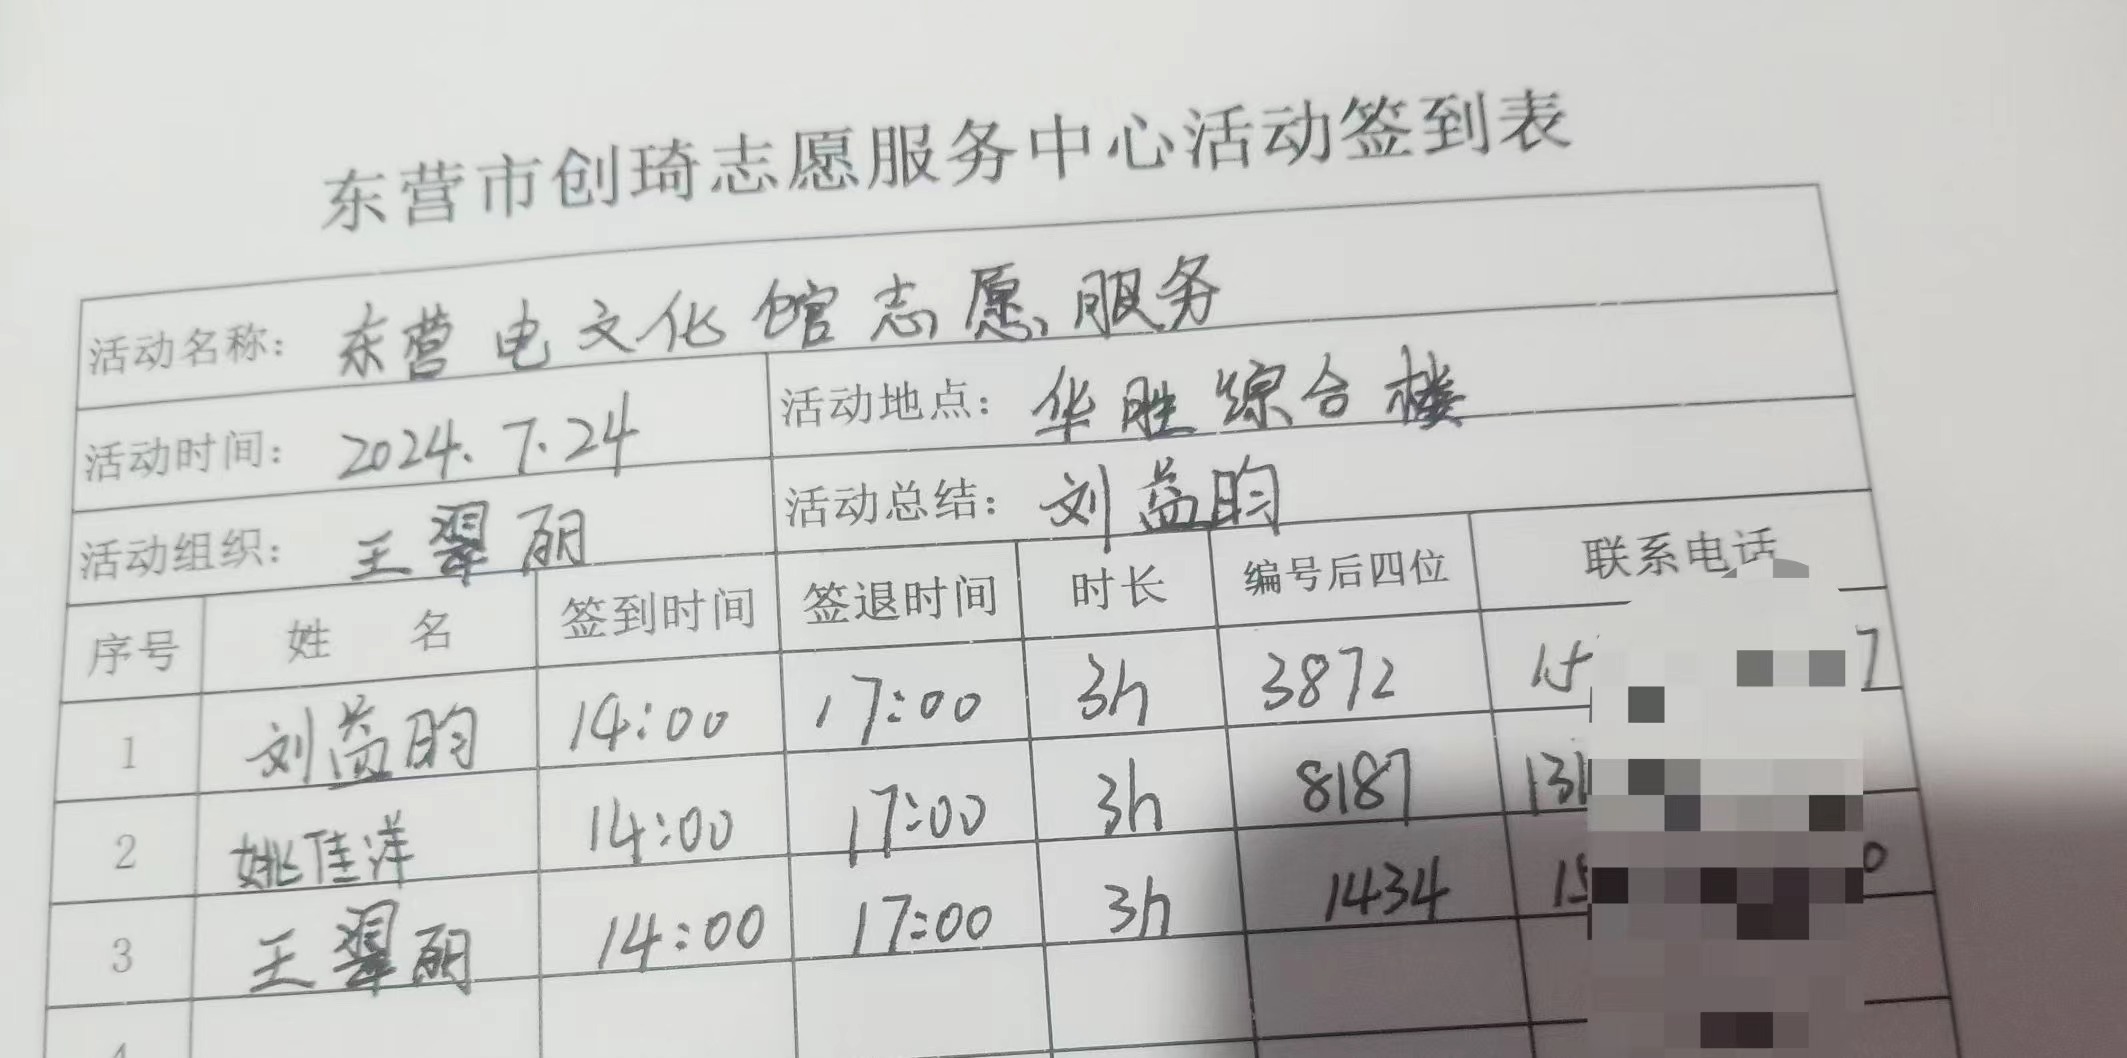 东营市创琦志愿服务中心活动签到表
活动名称: 东营电文化馆志愿服务
活动时间: 2024.7.24 活动地点: 华胜综合楼
活动组织: 王翠丽 活动总结: 刘益昀
序号 姓 名 签到时间 签退时间 时长 编号后四位 联系电话
1 刘益昀 14:00 17:00 3h 3872 15 7
2 姚佳洋 14:00 17:00 3h 8187 131
3 王翠丽 14:00 17:00 3h 1434 15 0
4